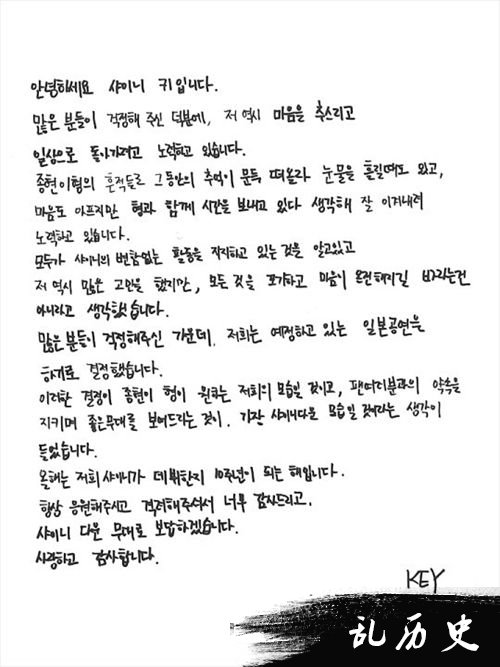 안녕하세요 샤이니 키입니다.
많은 분들이 걱정해 주신 덕분에, 저 역시 마음을 추스리고
일상으로 돌아가려고 노력하고 있습니다.
종현이형의 흔적들로 그동안의 추억이 문득 떠올라 눈물을 흘릴때도 있고,
마음도 아프지만 형과 함께 시간을 보내고 있다 생각해 잘 이겨내려
노력하고 있습니다.
모두가 샤이니의 변함없는 활동을 지지하고 있는 것을 알고있고
저 역시 많은 고민을 했지만, 모든 것을 포기하고 마음이 온전해지길 바라는건
아니라고 생각했습니다.
많은 분들이 걱정해주신 가운데, 저희는 예정하고 있는 일본공연을
하기로 결정했습니다.
이러한 결정이 종현이 형이 원하는 저희의 모습일 것이고, 팬여러분과의 약속을
지키며 좋은무대를 보여드리는 것이, 가장 샤이니다운 모습일 것이라는 생각이
들었습니다.
올해는 저희 샤이니가 데뷔한지 10주년이 되는 해입니다.
항상 응원해주시고 격려해주셔서 너무 감사드리고,
샤이니 다운 무대로 보답하겠습니다.
사랑하고 감사합니다.
KEY
乱历史